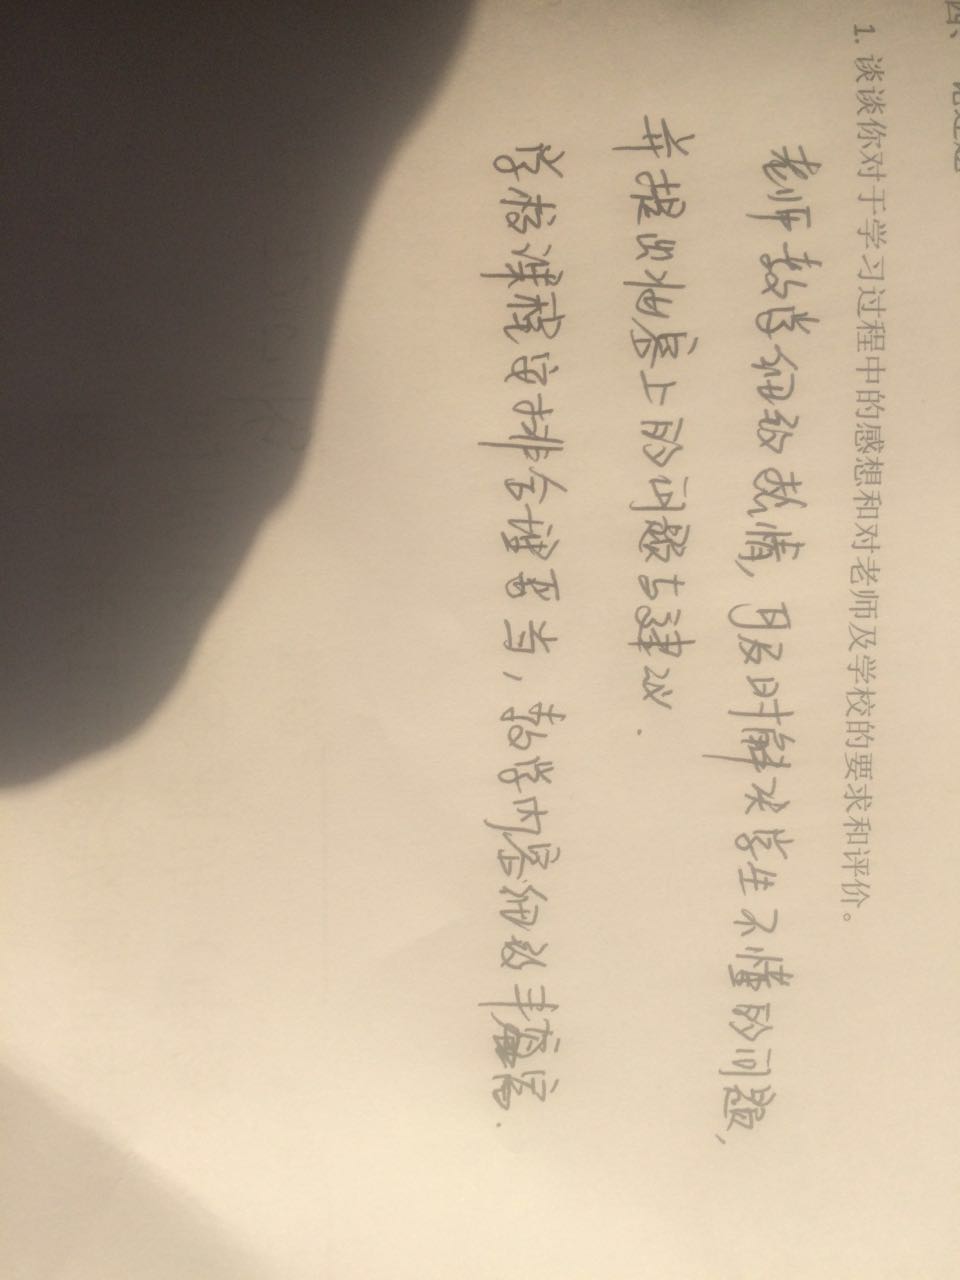 四、论述题
1. 谈谈你对于学习过程中的感想和对老师及学校的要求和评价。
老师教学细致热情，及时解决学生不懂的问题，
并提出形态上的问题与建议.
学校课程安排合理妥当，教学内容细致丰富.